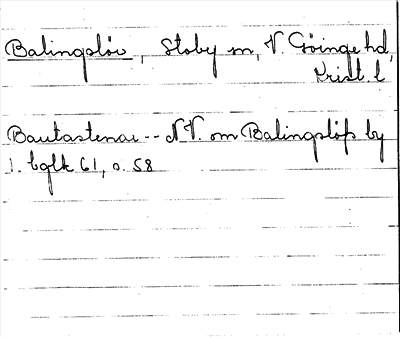 Balingslöv, Stoby sn, V. Göinge hd,
Krist. l.
Bautastenar -- N.V. om Balingslöfs by
1. bglk 61, s. 58